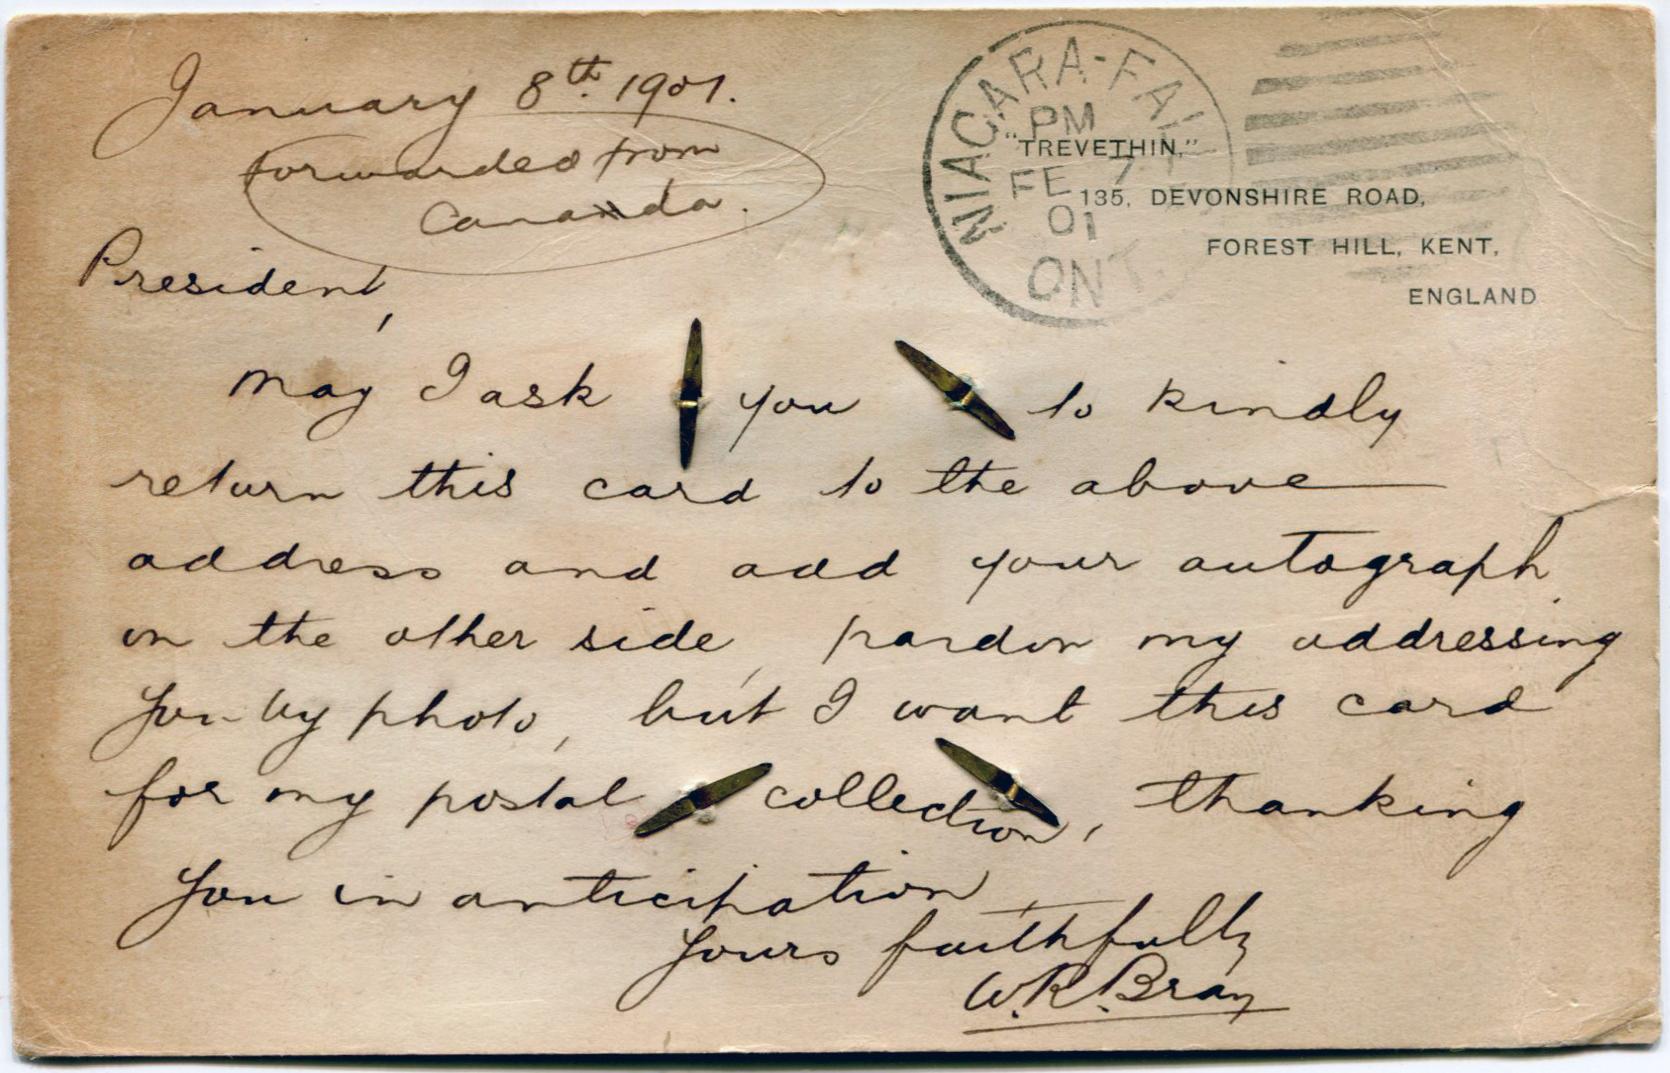 January 8th. 1901.
forwarded from
Canada.
NIAGARA-FAL
PM
FE 7
01
ONT.
"TREVETHIN,"
135, DEVONSHIRE ROAD,
FOREST HILL, KENT,
ENGLAND
President,
May I ask you to kindly
return this card to the above
address and add your autograph
on the other side, pardon my addressing
you by photo, but I want this card
for my postal collection, thanking
you in anticipation,
Yours faithfully
W.R. Bray